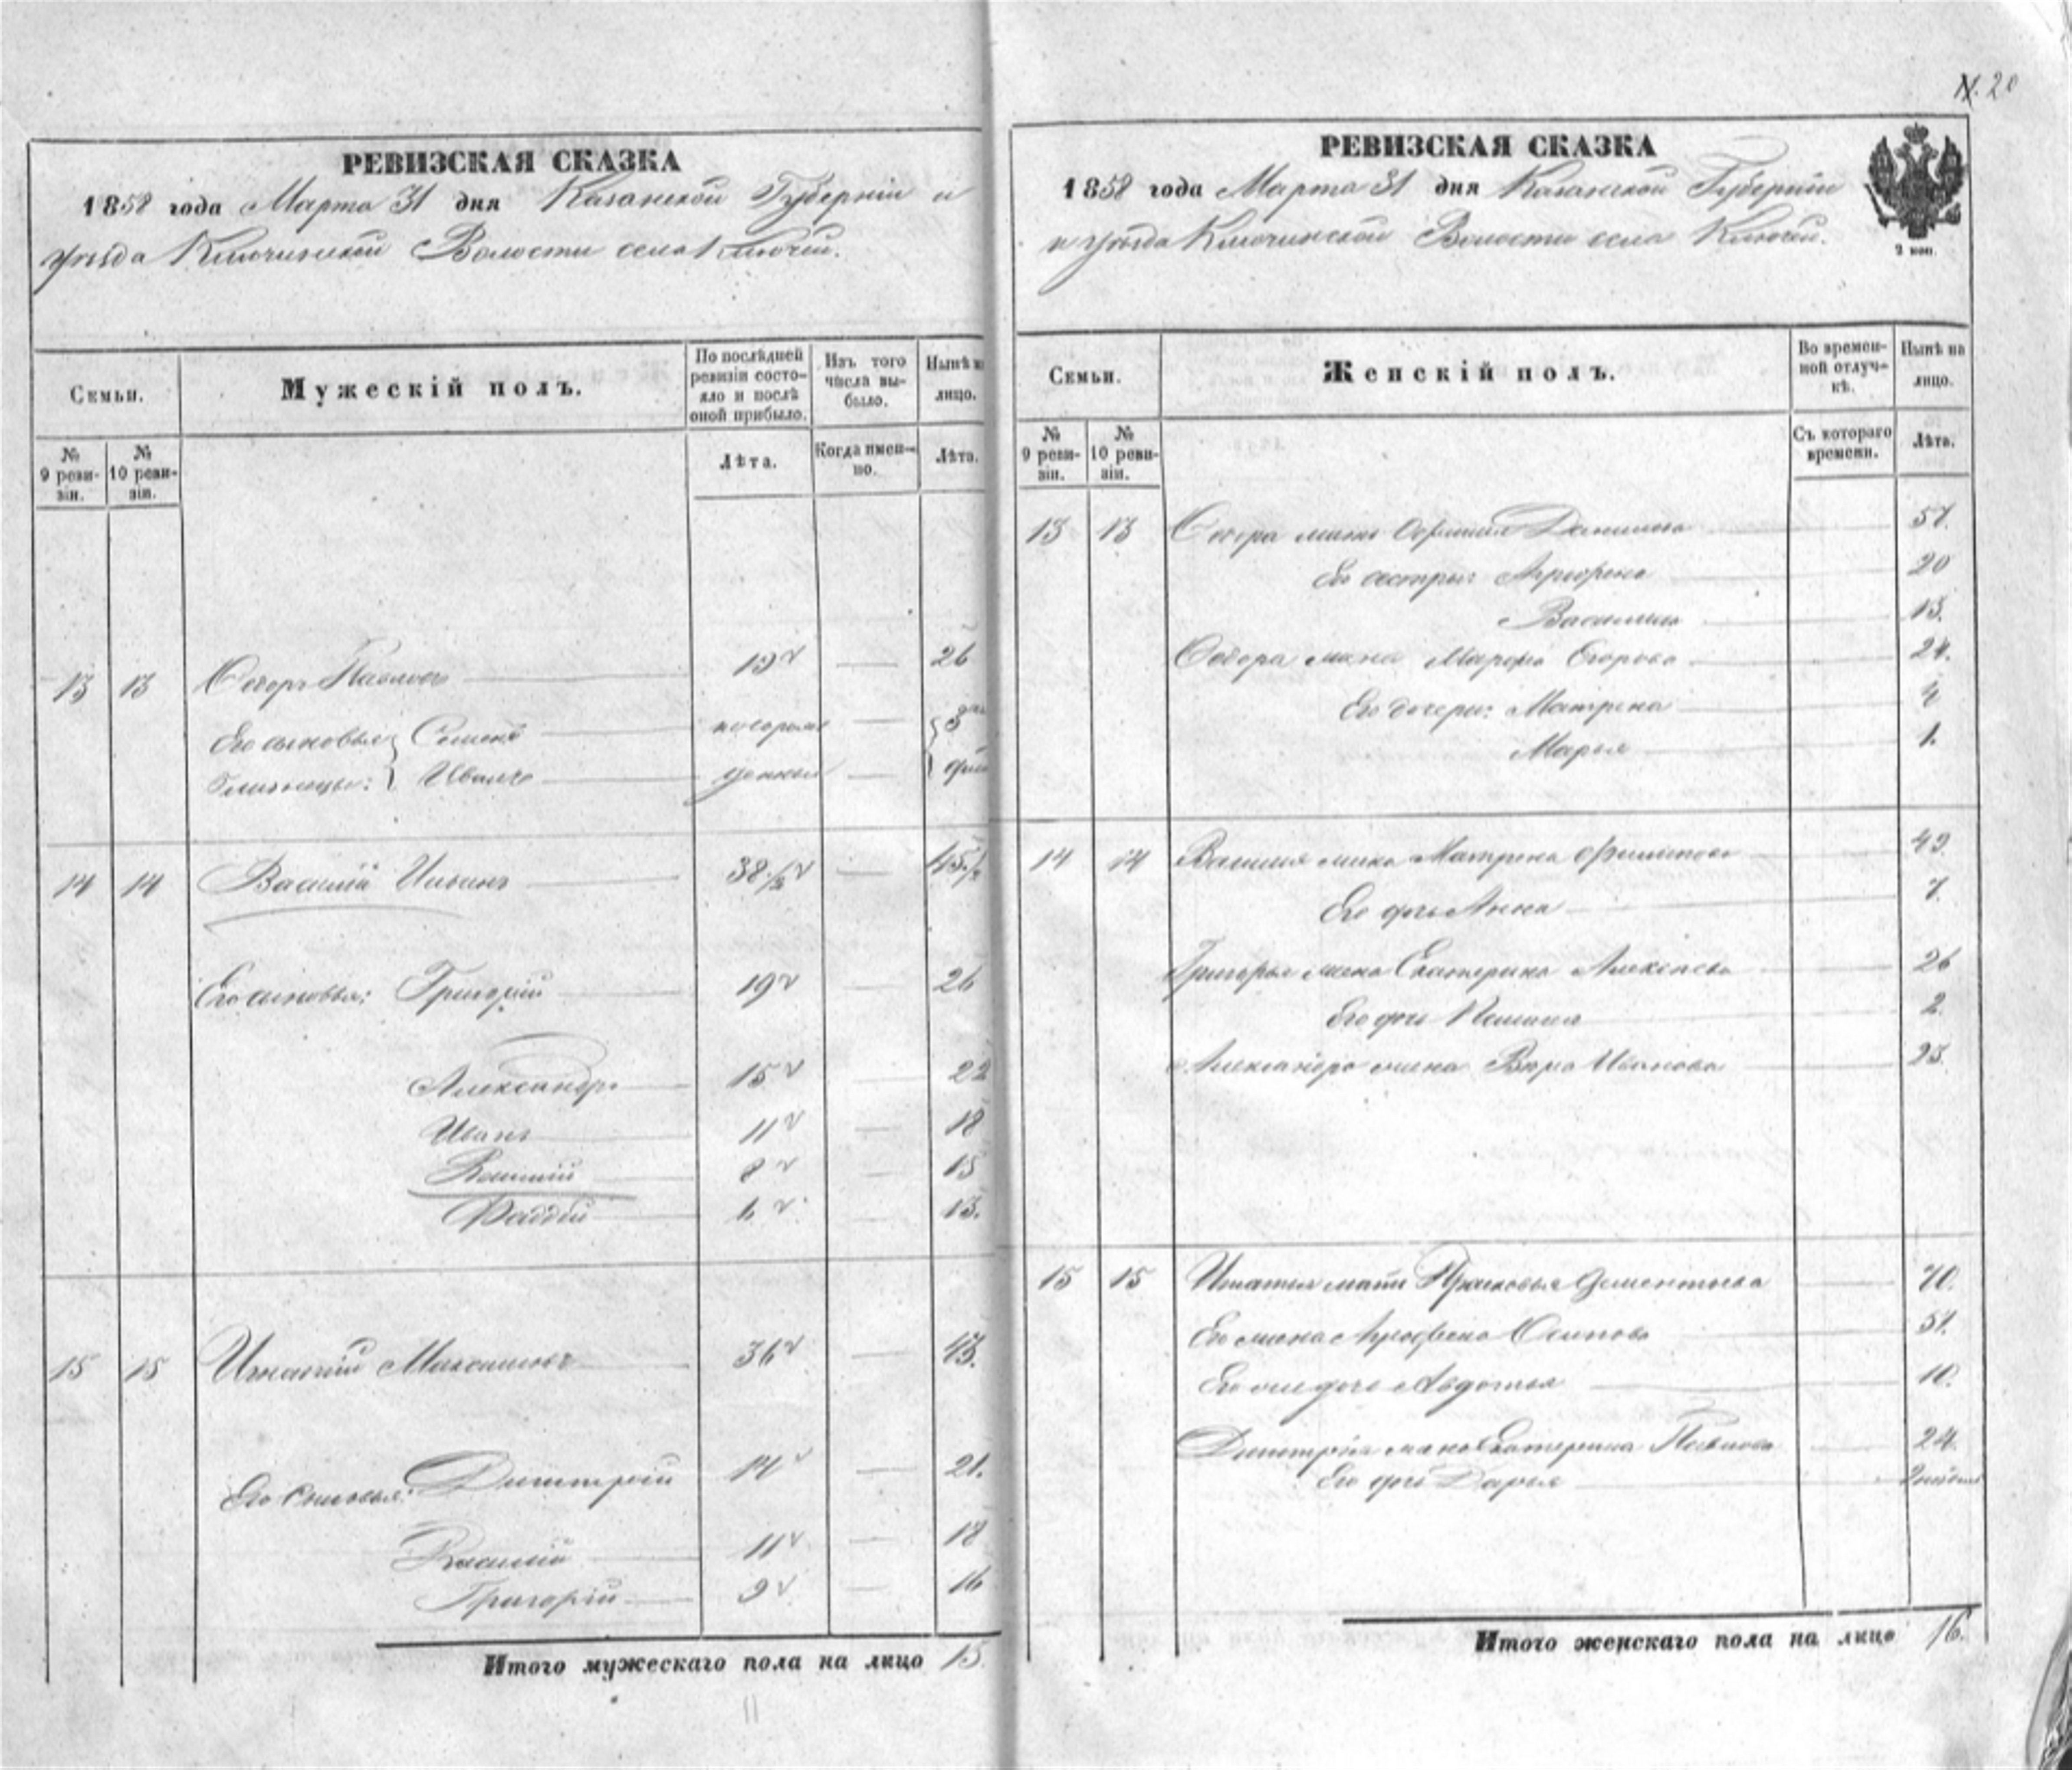 №. 20
РЕВИЗСКАЯ СКАЗКА
1858 года Марта 31 дня Казанской Губерніи и
уѣзда Ключинской Волости села Ключей.
Семьи.
Мужескій полъ.
По послѣдней ревизіи состояло и послѣ оной прибыло.
Изъ того числа выбыло.
Нынѣ на лицо.
№ 9 ревизіи.
№ 10 ревизіи.
Лѣта.
Когда именно.
Лѣта.
13 13 Павловъ 19 26
Его сыновья Семенъ 3
близнецы: Иванъ
14 14 Василій Ильинъ 38 1/2 45 1/2
Его сыновья: Григорій 19 26
Александръ 15 22
Иванъ 11 18
Василій 8 15
Фаддей 6 13.
15 15 Игнатій Максимовъ 36 43.
Его сыновья: Димитрій 14 21.
Василій 11 18
Григорій 9 16
Итого мужескаго пола на лицо 15.
РЕВИЗСКАЯ СКАЗКА
1858 года Марта 31 дня Казанской Губерніи
и уѣзда Ключинской Волости села Ключей.
2 коп.
Семьи.
Женскій полъ.
Во временной отлучкѣ.
Нынѣ на лицо.
№ 9 ревизіи.
№ 10 ревизіи.
Съ котораго времени.
Лѣта.
13 13 Данилова 57.
Его сестры Агрофена 20
Василиса 13.
жена Марфа Егорова 24.
Его дочери: Матрена 4
Марья 1.
14 14 Василья жена Матрена Филипова 49.
Его дочь Анна 7.
Григорья жена Екатерина Алексѣева 26
Его дочь 2.
Александра жена Вѣра Иванова 23.
15 15 Игнатья мать Прасковья Дементьева 70.
Его жена Агрофена Осипова 51.
Его же дочь Авдотья 10.
Димитрія жена Екатерина Павлова 24.
Его дочь Дарья
Итого женскаго пола на лицо 16.